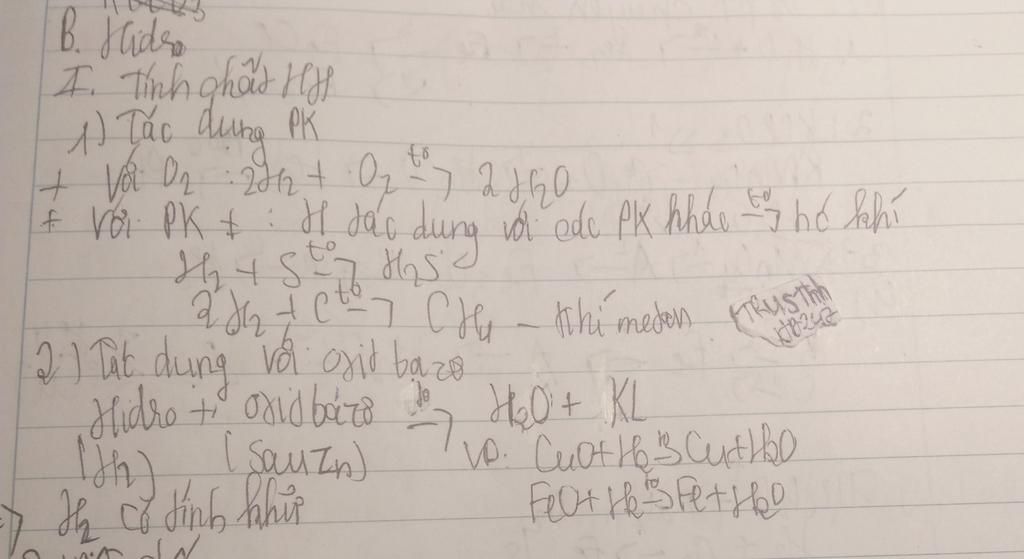 B. Hidro
I. Tính chất HH
1) Tác dụng PK
+ Với O2 : 2H2 + O2 t° → 2H2O
+ Với PK ≠ : H tác dụng với các PK khác t° → hc khí
H2 + S t° → H2S
2H2 + C t° → CH4 - Khí metan
2) Tát dụng với oxit bazơ
Hidro + oxit bazơ t° → H2O + KL
(H2) (Sau Zn) VD: CuO + H2 t° → Cu + H2O
FeO + H2 t° → Fe + H2O
=> H2 có tính khử